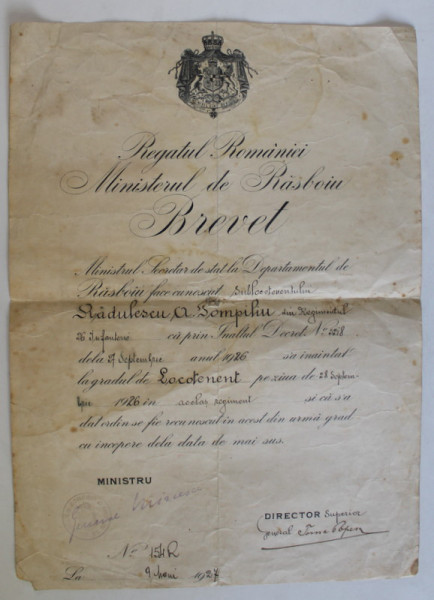 Regatul României
Ministerul de Răsboiu
Brevet
Ministrul Secretar de stat la Departamentul de
Răsboiu face cunoscut Sublocotenentului
Rădulescu A. Pompiliu din Regimentul
26 Infanterie că prin Înaltul Decret No
dela 27 Septembrie anul 1926 s'a înaintat
la gradul de Locotenent pe ziua de 28 Septem-
brie 1926 în acelaș regiment și că s'a
dat ordin se fie recunoscut în acest din urmă grad
cu începere dela data de mai sus.
MINISTRU
DIRECTOR Superior
No 154
La 9 1927